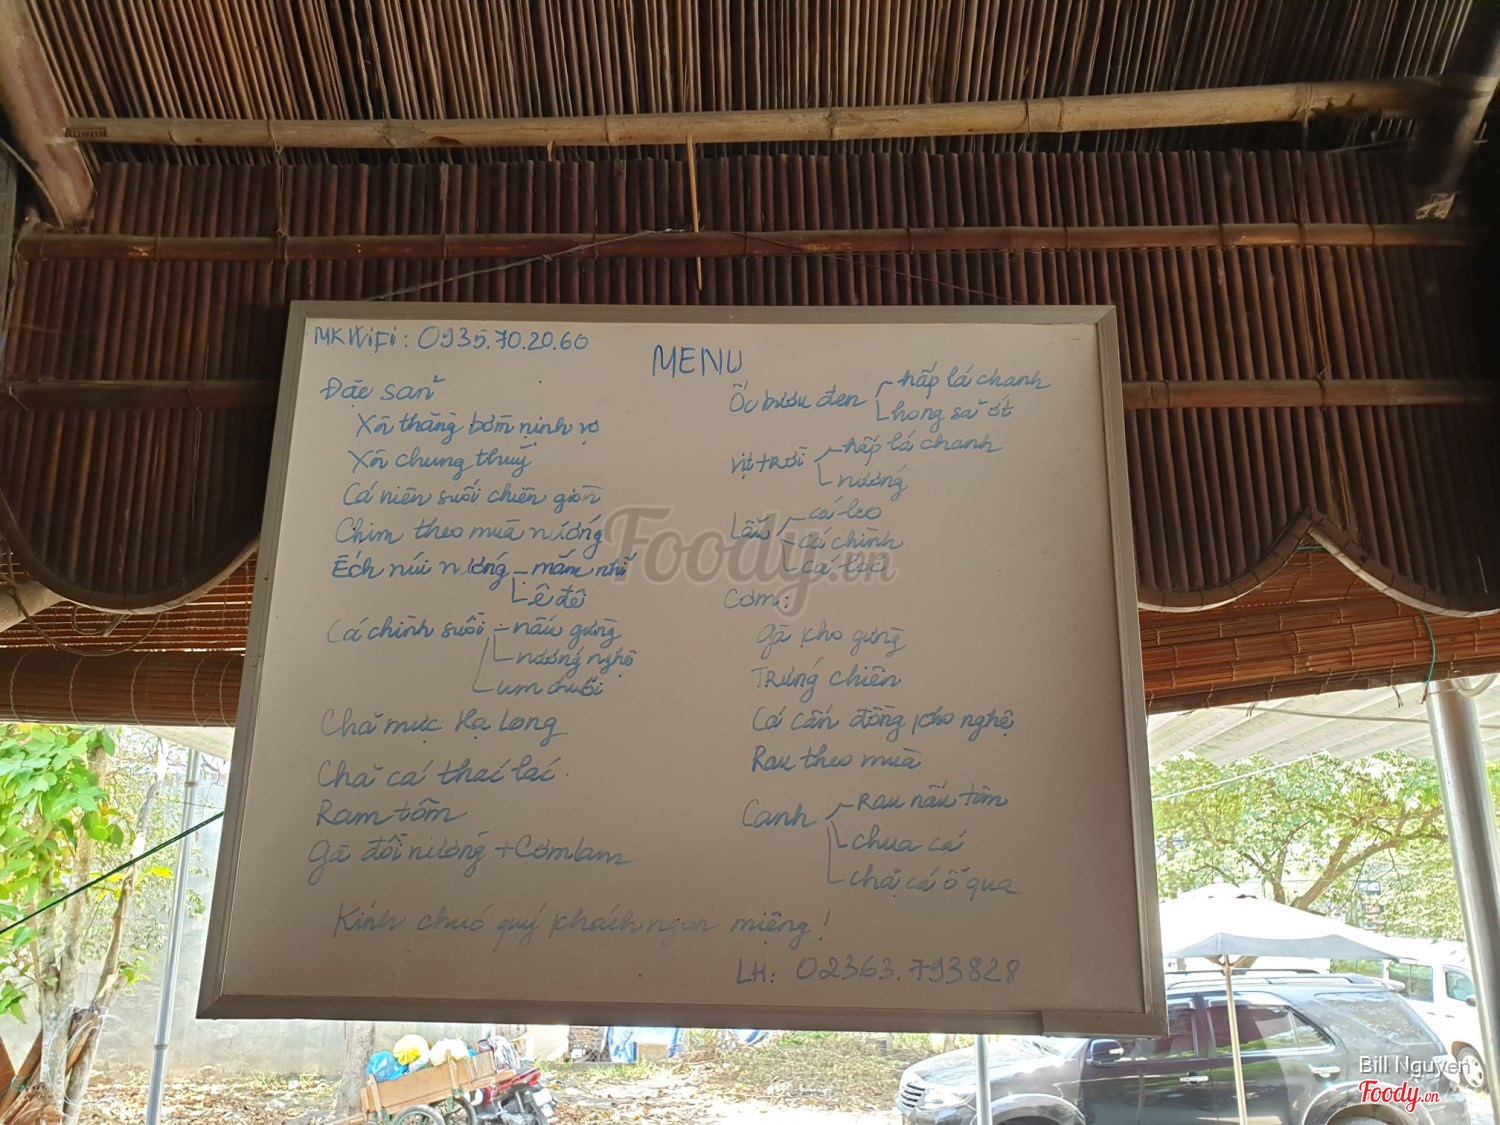 MK WiFi: 0935.70.20.60
MENU
Đặc sản
Xôi thằng bờm nịnh vợ
Xôi chung thuỷ
Cá niên suối chiên giòn
Chim theo mùa nướng
Ếch núi nướng - mắm nhĩ
ê đê
Cá chình suối - nấu gừng
nướng nghệ
um chuối
Chả mực Hạ Long
Chả cá thác lác
Ram tôm
Gà đồi nướng + Cơm lam
Ốc bươu đen - hấp lá chanh
hong sả ớt
Vịt trời - hấp lá chanh
nướng
Lẩu - cá leo
cá chình
cá lóc
Cơm:
Gà kho gừng
Trứng chiên
Cá cấn đồng kho nghệ
Rau theo mùa
Canh - Rau nấu tôm
chua cá
chả cá ổ qua
Kính chúc quý khách ngon miệng!
LH: 02363.793828
Foody.vn
Bill Nguyen
Foody.vn